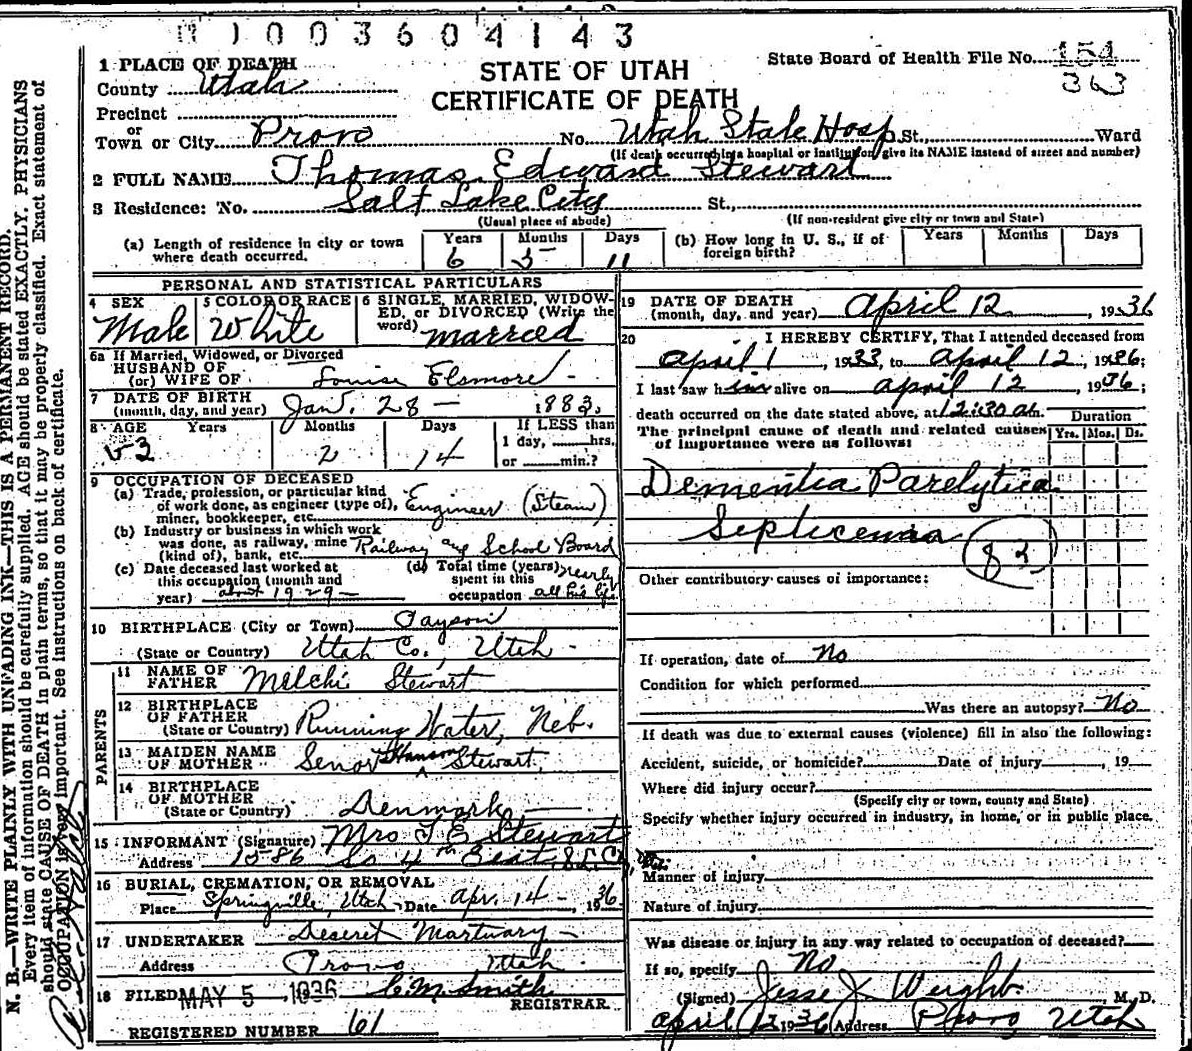 1003604143
1 PLACE OF DEATH
County Utah
STATE OF UTAH
CERTIFICATE OF DEATH
State Board of Health File No. 154
363
Precinct
or
Town or City Provo No. Utah State Hosp St., Ward
(If death occurred in a hospital or institution, give its NAME instead of street and number)
2 FULL NAME Thomas Edward Stewart
3 Residence: No. Salt Lake City St.,
(Usual place of abode) (If non-resident give city or town and State)
(a) Length of residence in city or town where death occurred. Years 6 Months 5 Days 11
(b) How long in U. S., if of foreign birth? Years Months Days
PERSONAL AND STATISTICAL PARTICULARS
4 SEX Male
5 COLOR OR RACE White
6 SINGLE, MARRIED, WIDOWED, or DIVORCED (Write the word) married
6a If Married, Widowed, or Divorced
HUSBAND OF
(or) WIFE OF Louise Elsmore
7 DATE OF BIRTH
(month, day, and year) Jan. 28 - 1883.
8 AGE Years 53 Months 2 Days 14 If LESS than
1 day, hrs.
or min.?
9 OCCUPATION OF DECEASED
(a) Trade, profession, or particular kind
of work done, as engineer (type of),
miner, bookkeeper, etc. Engineer (Steam)
(b) Industry or business in which work
was done, as railway, mine
(kind of), bank, etc. Railway and School Board
(c) Date deceased last worked at
this occupation (month and
year) about 1929
(d) Total time (years)
spent in this
occupation nearly all his life
10 BIRTHPLACE (City or Town) Payson
(State or Country) Utah Co., Utah
PARENTS
11 NAME OF
FATHER Melchi Stewart
12 BIRTHPLACE
OF FATHER
(State or Country) Running Water, Neb.
13 MAIDEN NAME
OF MOTHER Hanson Stewart
14 BIRTHPLACE
OF MOTHER
(State or Country) Denmark
15 INFORMANT (Signature) Mrs T E Stewart
Address 1586 So 4th East, S.L.C.,
16 BURIAL, CREMATION, OR REMOVAL
Place Springville, Utah Date Apr. 14 -, 1936
17 UNDERTAKER Deseret Mortuary
Address Provo Utah
18 FILED MAY 5, 1936 C. M. Smith
REGISTRAR.
REGISTERED NUMBER 61
19 DATE OF DEATH
(month, day, and year) April 12, 1936
20 I HEREBY CERTIFY, That I attended deceased from
April 1, 1933, to April 12, 1936;
I last saw him alive on April 12, 1936;
death occurred on the date stated above, at 12:30 am.
The principal cause of death and related causes
of importance were as follows: Duration
Yrs. Mos. Ds.
Dementia Paralytica
Septicemia
83
Other contributory causes of importance:
If operation, date of No
Condition for which performed
Was there an autopsy? No
If death was due to external causes (violence) fill in also the following:
Accident, suicide, or homicide? Date of injury, 19
Where did injury occur?
(Specify city or town, county and State)
Specify whether injury occurred in industry, in home, or in public place.
Manner of injury
Nature of injury
Was disease or injury in any way related to occupation of deceased?
If so, specify No
(Signed) Jesse J Weight M. D.
April 12 1936 Address Provo Utah
N. B.—WRITE PLAINLY WITH UNFADING INK—THIS IS A PERMANENT RECORD.
Every item of information should be carefully supplied. AGE should be stated EXACTLY. PHYSICIANS
should state CAUSE OF DEATH in plain terms, so that it may be properly classified. Exact statement of
OCCUPATION is very important. See instructions on back of certificate.